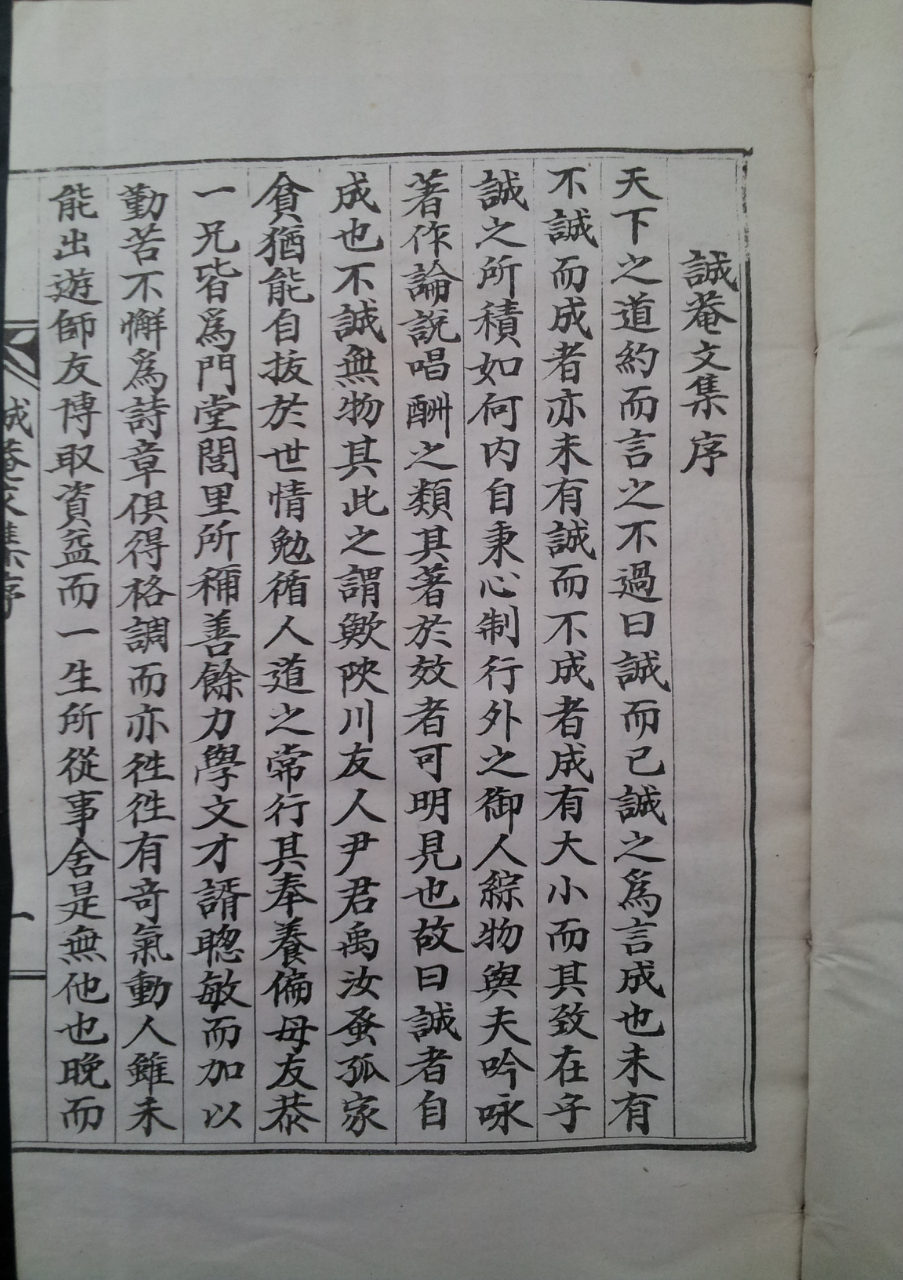 誠菴文集序
天下之道約而言之不過曰誠而已誠之爲言成也未有
不誠而成者亦未有誠而不成者成有大小而其致在乎
誠之所積如何內自秉心制行外之御人綜物與夫吟咏
著作論說唱酬之類其著於效者可明見也故曰誠者自
成也不誠無物其此之謂歟陜川友人尹君禹汝蚤孤家
貧猶能自拔於世情勉循人道之常行其奉養偏母友恭
一兄皆爲門堂閭里所稱善餘力學文才諝聰敏而加以
勤苦不懈爲詩章俱得格調而亦徃徃有奇氣動人雖未
能出遊師友博取資益而一生所從事舍是無他也晩而
誠菴文集序
一